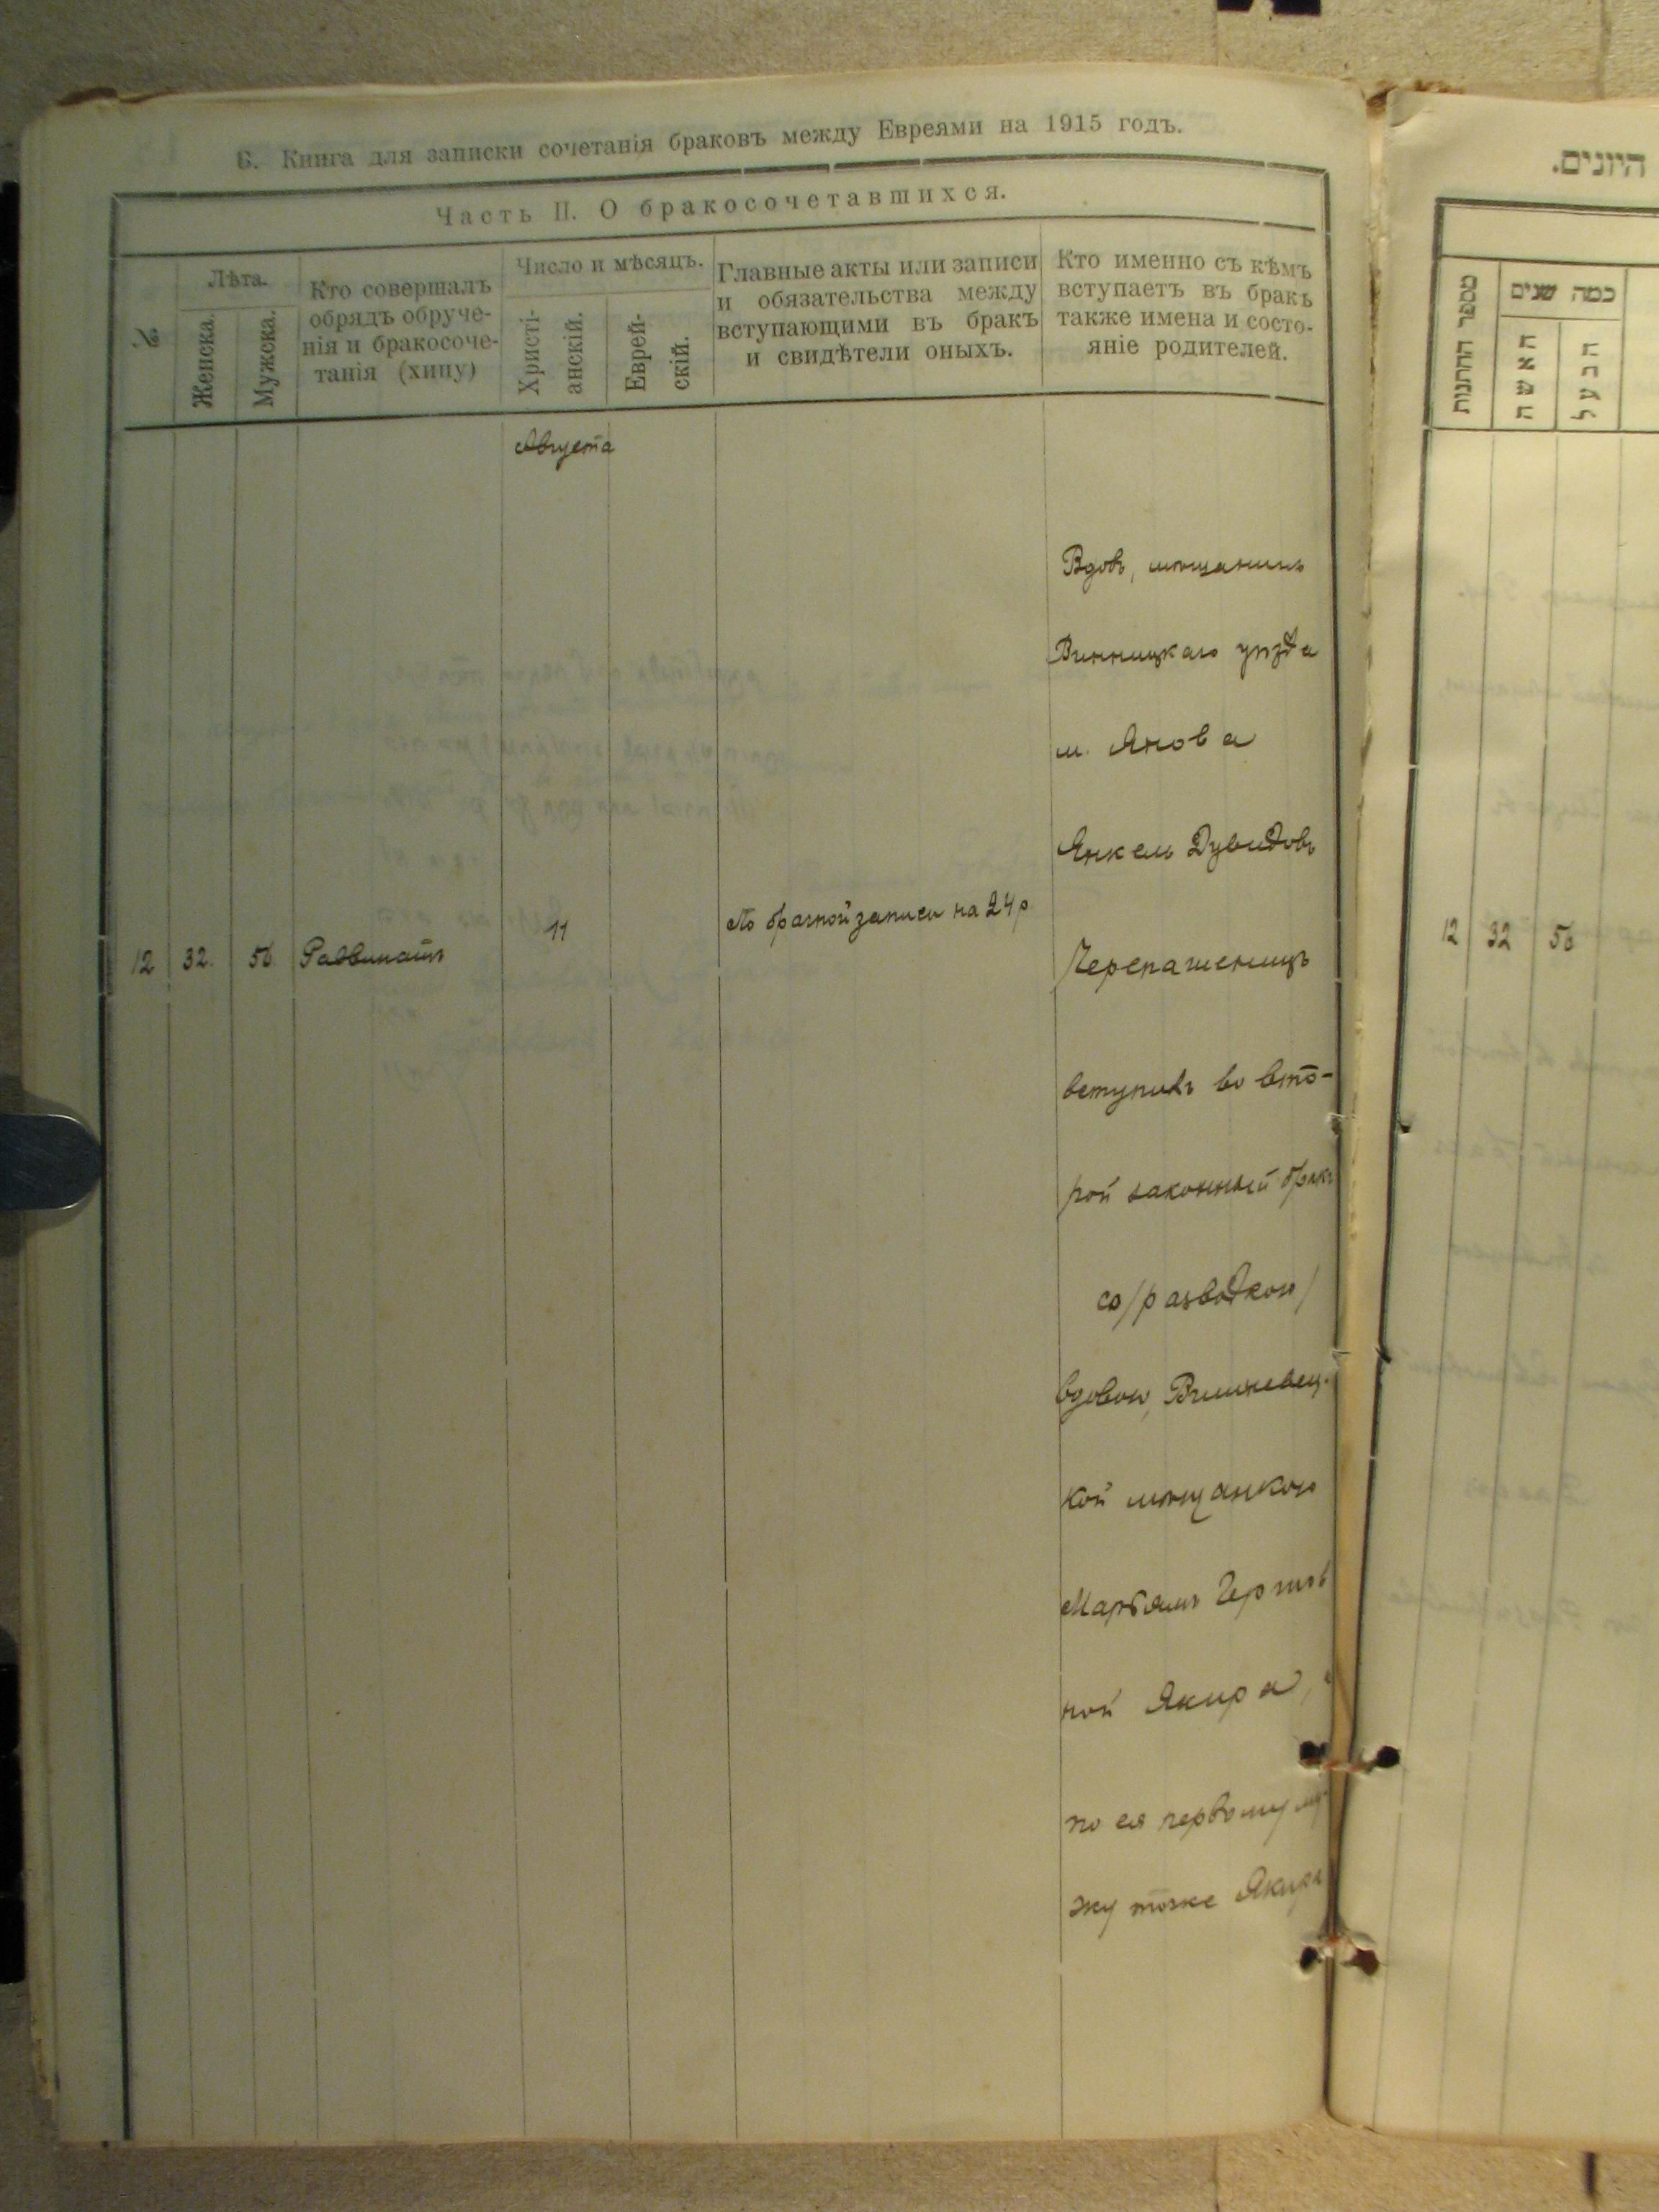 Б. Книга для записки сочетанія браковъ между Евреями на 1915 годъ.
Часть II. О бракосочетавшихся.
№
Лѣта.
Женска.
Мужска.
Кто совершалъ
обрядъ обруче-
нія и бракосоче-
танія (хипу)
Число и мѣсяцъ.
Христі-
анскій.
Еврей-
скій.
Главные акты или записи
и обязательства между
вступающими въ бракъ
и свидѣтели оныхъ.
Кто именно съ кѣмъ
вступаетъ въ бракъ
также имена и состо-
яніе родителей.
Августа
12 32. 56. Раввинатъ 11 По брачной записи на 24 р
Вдовъ, мѣщанинъ
Винницкаго уѣзда
м. Янова
Янкель Дувидовъ
Черепашенецъ
вступилъ во вто-
рой законный бракъ
со /разводкою/
вдовою, Вишневец-
кой мѣщанкою
Марьямъ Гершов
ной Якира,
по ея первому му
жу тоже Якиръ
היונים.
מספר החתונות
כמה שנים
האשה
הבעל
12 32 56